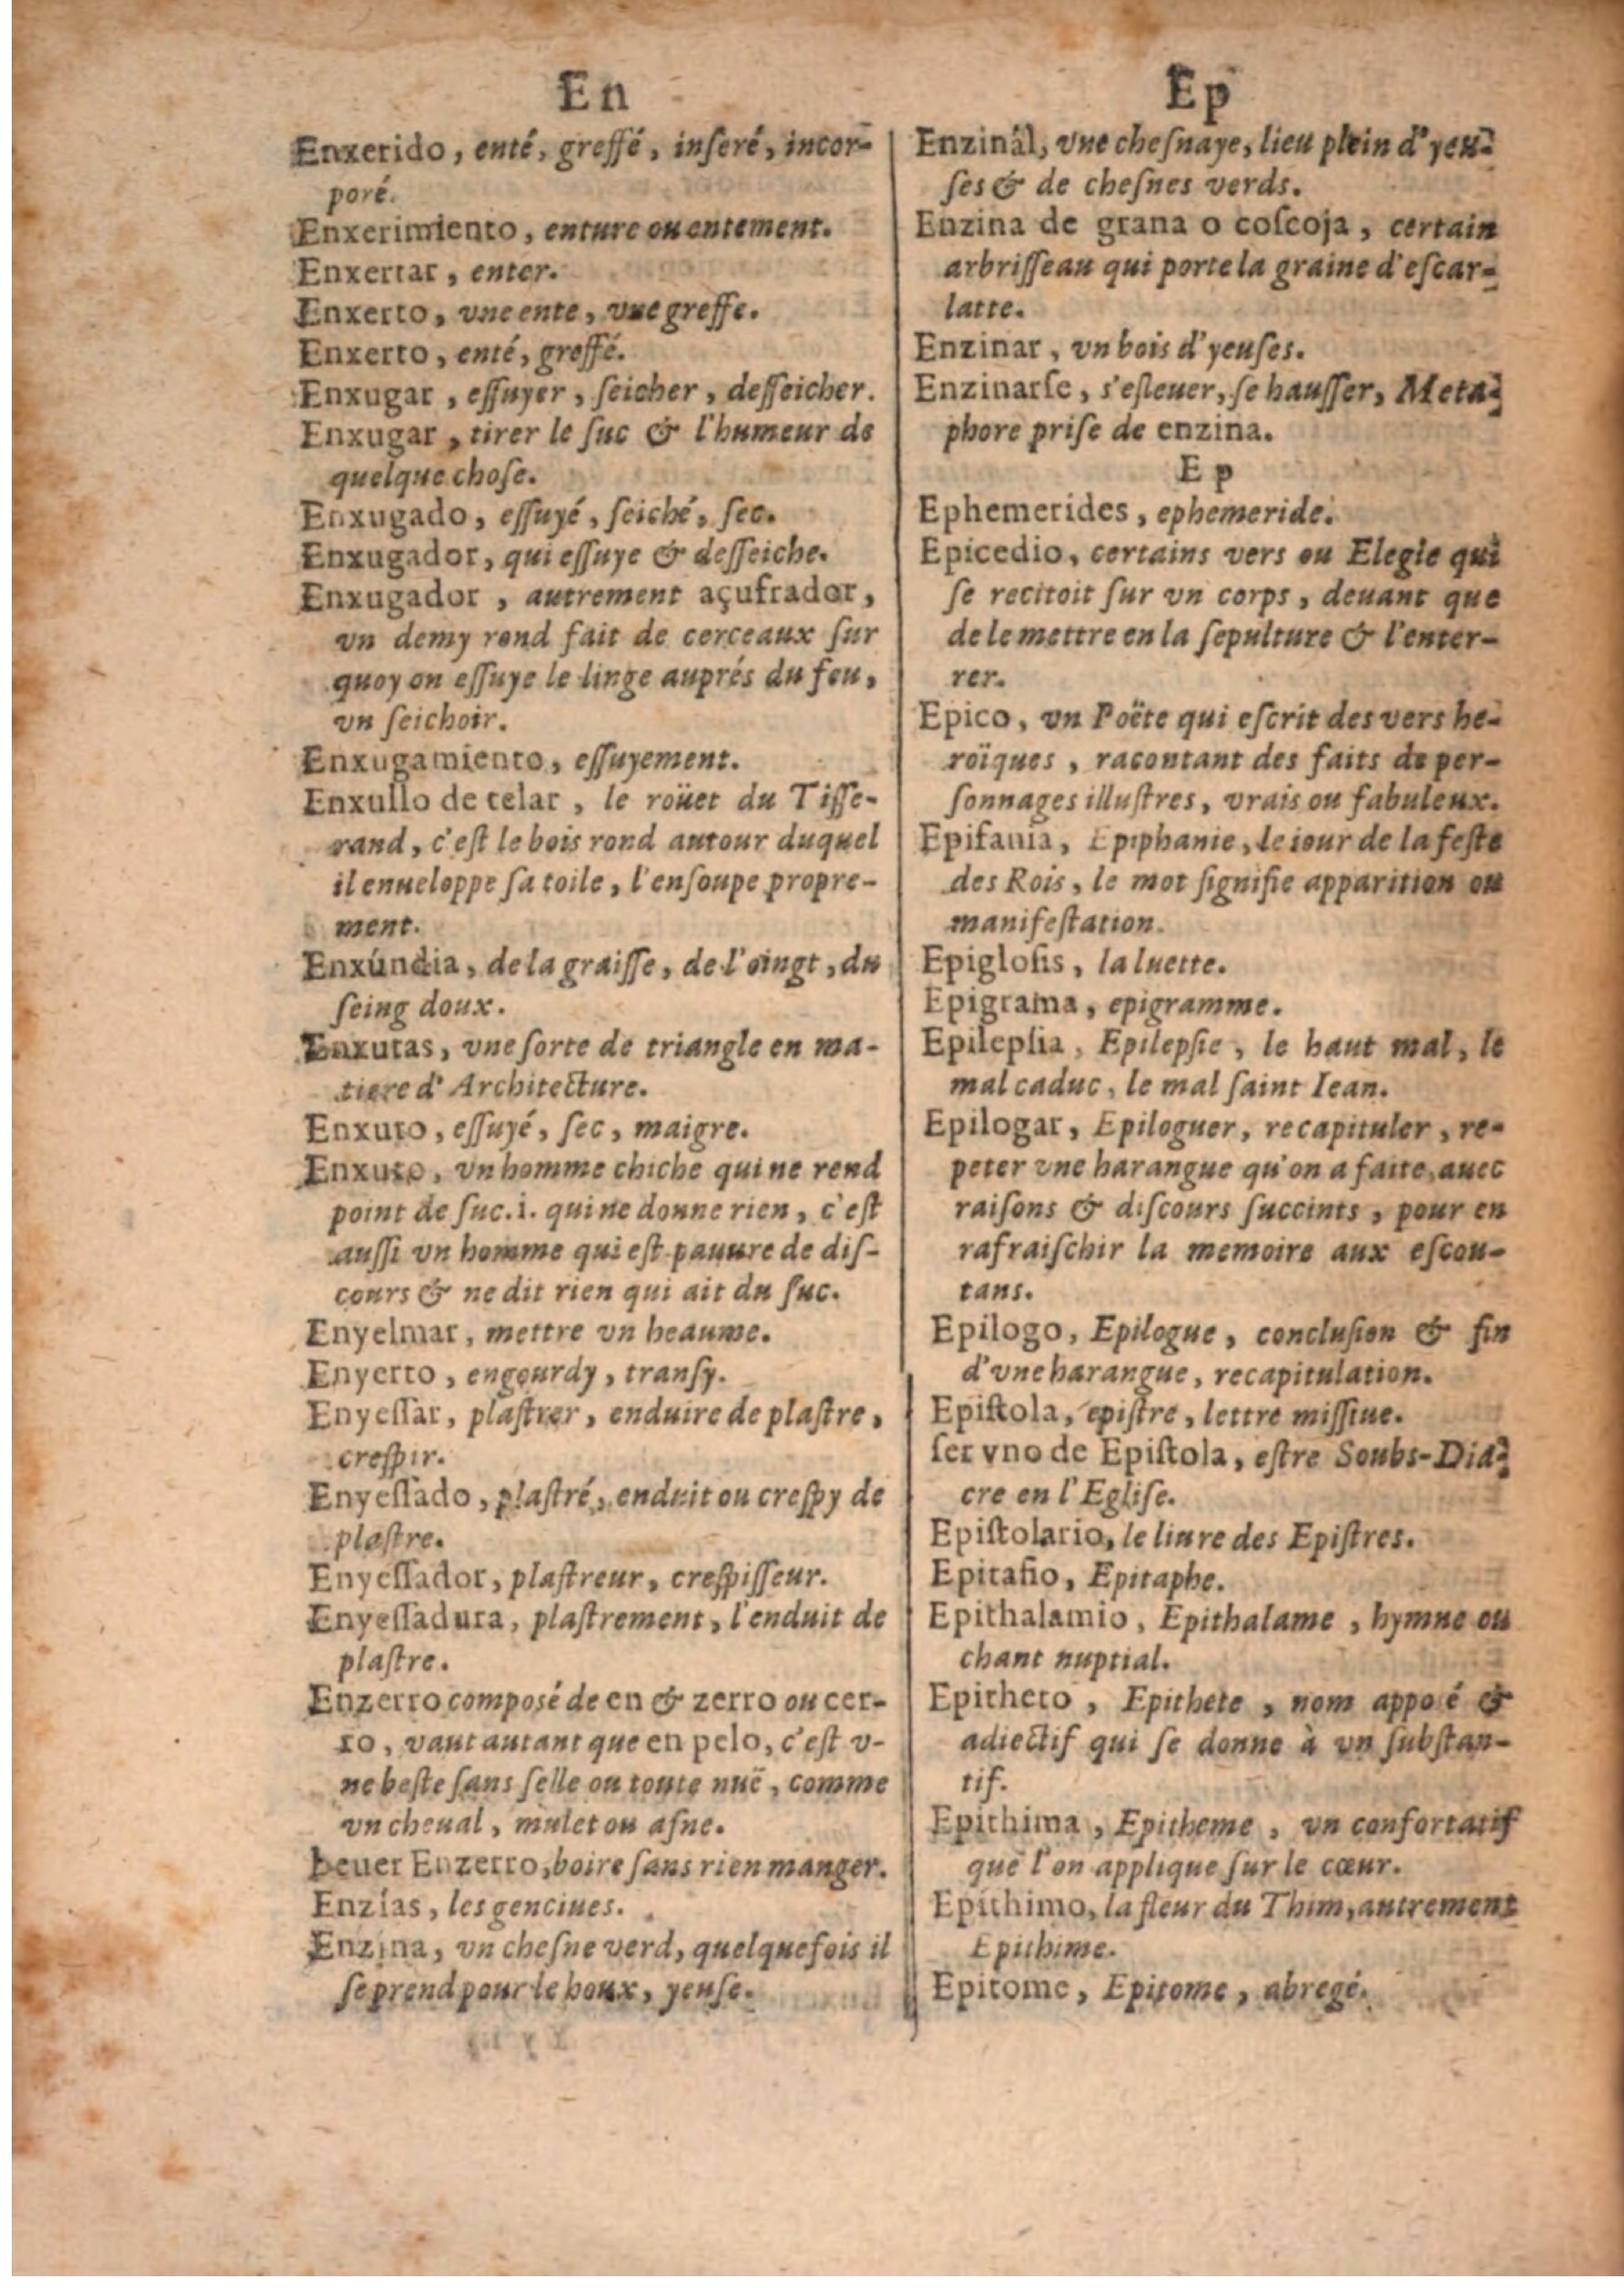 En
Enxerido, enté, greffé, inſeré, incor-
poré.
Enxerimiento, enture ou entement.
Enxertar, enter.
Enxerto, vne ente, vne greffe.
Enxerto, enté, greffé.
Enxugar, eſſuyer, ſeicher, deſſeicher.
Enxugar, tirer le ſuc & l'humeur de
quelque choſe.
Enxugado, eſſuyé, ſeiché, ſec.
Enxugador, qui eſſuye & deſſeiche.
Enxugador, autrement açufrador,
vn demy rond fait de cerceaux ſur
quoy on eſſuye le linge auprés du feu,
vn ſeichoir.
Enxugamiento, eſſuyement.
Enxullo de telar, le roüet du Tiſſe-
rand, c'eſt le bois rond autour duquel
il enueloppe ſa toile, l'enſoupe propre-
ment.
Enxúndia, de la graiſſe, de l'oingt, du
ſeing doux.
Enxutas, vne ſorte de triangle en ma-
tiere d'Architecture.
Enxuto, eſſuyé, ſec, maigre.
Enxuto, vn homme chiche qui ne rend
point de ſuc. i. qui ne donne rien, c'eſt
auſſi vn homme qui eſt pauure de diſ-
cours & ne dit rien qui ait du ſuc.
Enyelmar, mettre vn heaume.
Enyerto, engourdy, tranſy.
Enyeſſar, plaſtrer, enduire de plaſtre,
creſpir.
Enyeſſado, plaſtré, enduit ou creſpy de
plaſtre.
Enyeſſador, plaſtreur, creſpiſſeur.
Enyeſſadura, plaſtrement, l'enduit de
plaſtre.
Enzerro compoſé de en & zerro ou cer-
ro, vaut autant que en pelo, c'eſt v-
ne beſte ſans ſelle ou toute nuë, comme
vn cheual, mulet ou aſne.
beuer Enzerro, boire ſans rien manger.
Enzías, les genciues.
Enzina, vn cheſne verd, quelquefois il
ſe prend pour le houx, yeuſe.
Ep
Enzinâl, vne cheſnaye, lieu plein d'yeu-
ſes & de cheſnes verds.
Enzina de grana o coſcoja, certain
arbriſſeau qui porte la graine d'eſcar-
latte.
Enzinar, vn bois d'yeuſes.
Enzinarſe, s'eſleuer, ſe hauſſer, Meta-
phore priſe de enzina.
Ep
Ephemerides, ephemeride.
Epicedio, certains vers ou Elegie qui
ſe recitoit ſur vn corps, deuant que
de le mettre en la ſepulture & l'enter-
rer.
Epico, vn Poëte qui eſcrit des vers he-
roïques, racontant des faits de per-
ſonnages illuſtres, vrais ou fabuleux.
Epifania, Epiphanie, le iour de la feſte
des Rois, le mot ſignifie apparition ou
manifeſtation.
Epigloſis, la luette.
Epigrama, epigramme.
Epilepſia, Epilepſie, le haut mal, le
mal caduc, le mal ſaint Iean.
Epilogar, Epiloguer, recapituler, re-
peter vne harangue qu'on a faite, auec
raiſons & diſcours ſuccints, pour en
rafraiſchir la memoire aux eſcou-
tans.
Epilogo, Epilogue, concluſion & fin
d'vne harangue, recapitulation.
Epiſtola, epiſtre, lettre miſſiue.
ſer vno de Epiſtola, eſtre Soubs-Dia-
cre en l'Egliſe.
Epiſtolario, le liure des Epiſtres.
Epitafio, Epitaphe.
Epithalamio, Epithalame, hymne ou
chant nuptial.
Epitheto, Epithete, nom appoſé &
adiectif qui ſe donne à vn ſubſtan-
tif.
Epithima, Epitheme, vn confortatif
que l'on applique ſur le cœur.
Epíthimo, la fleur du Thim, autrement
Epithime.
Epitome, Epitome, abregé.